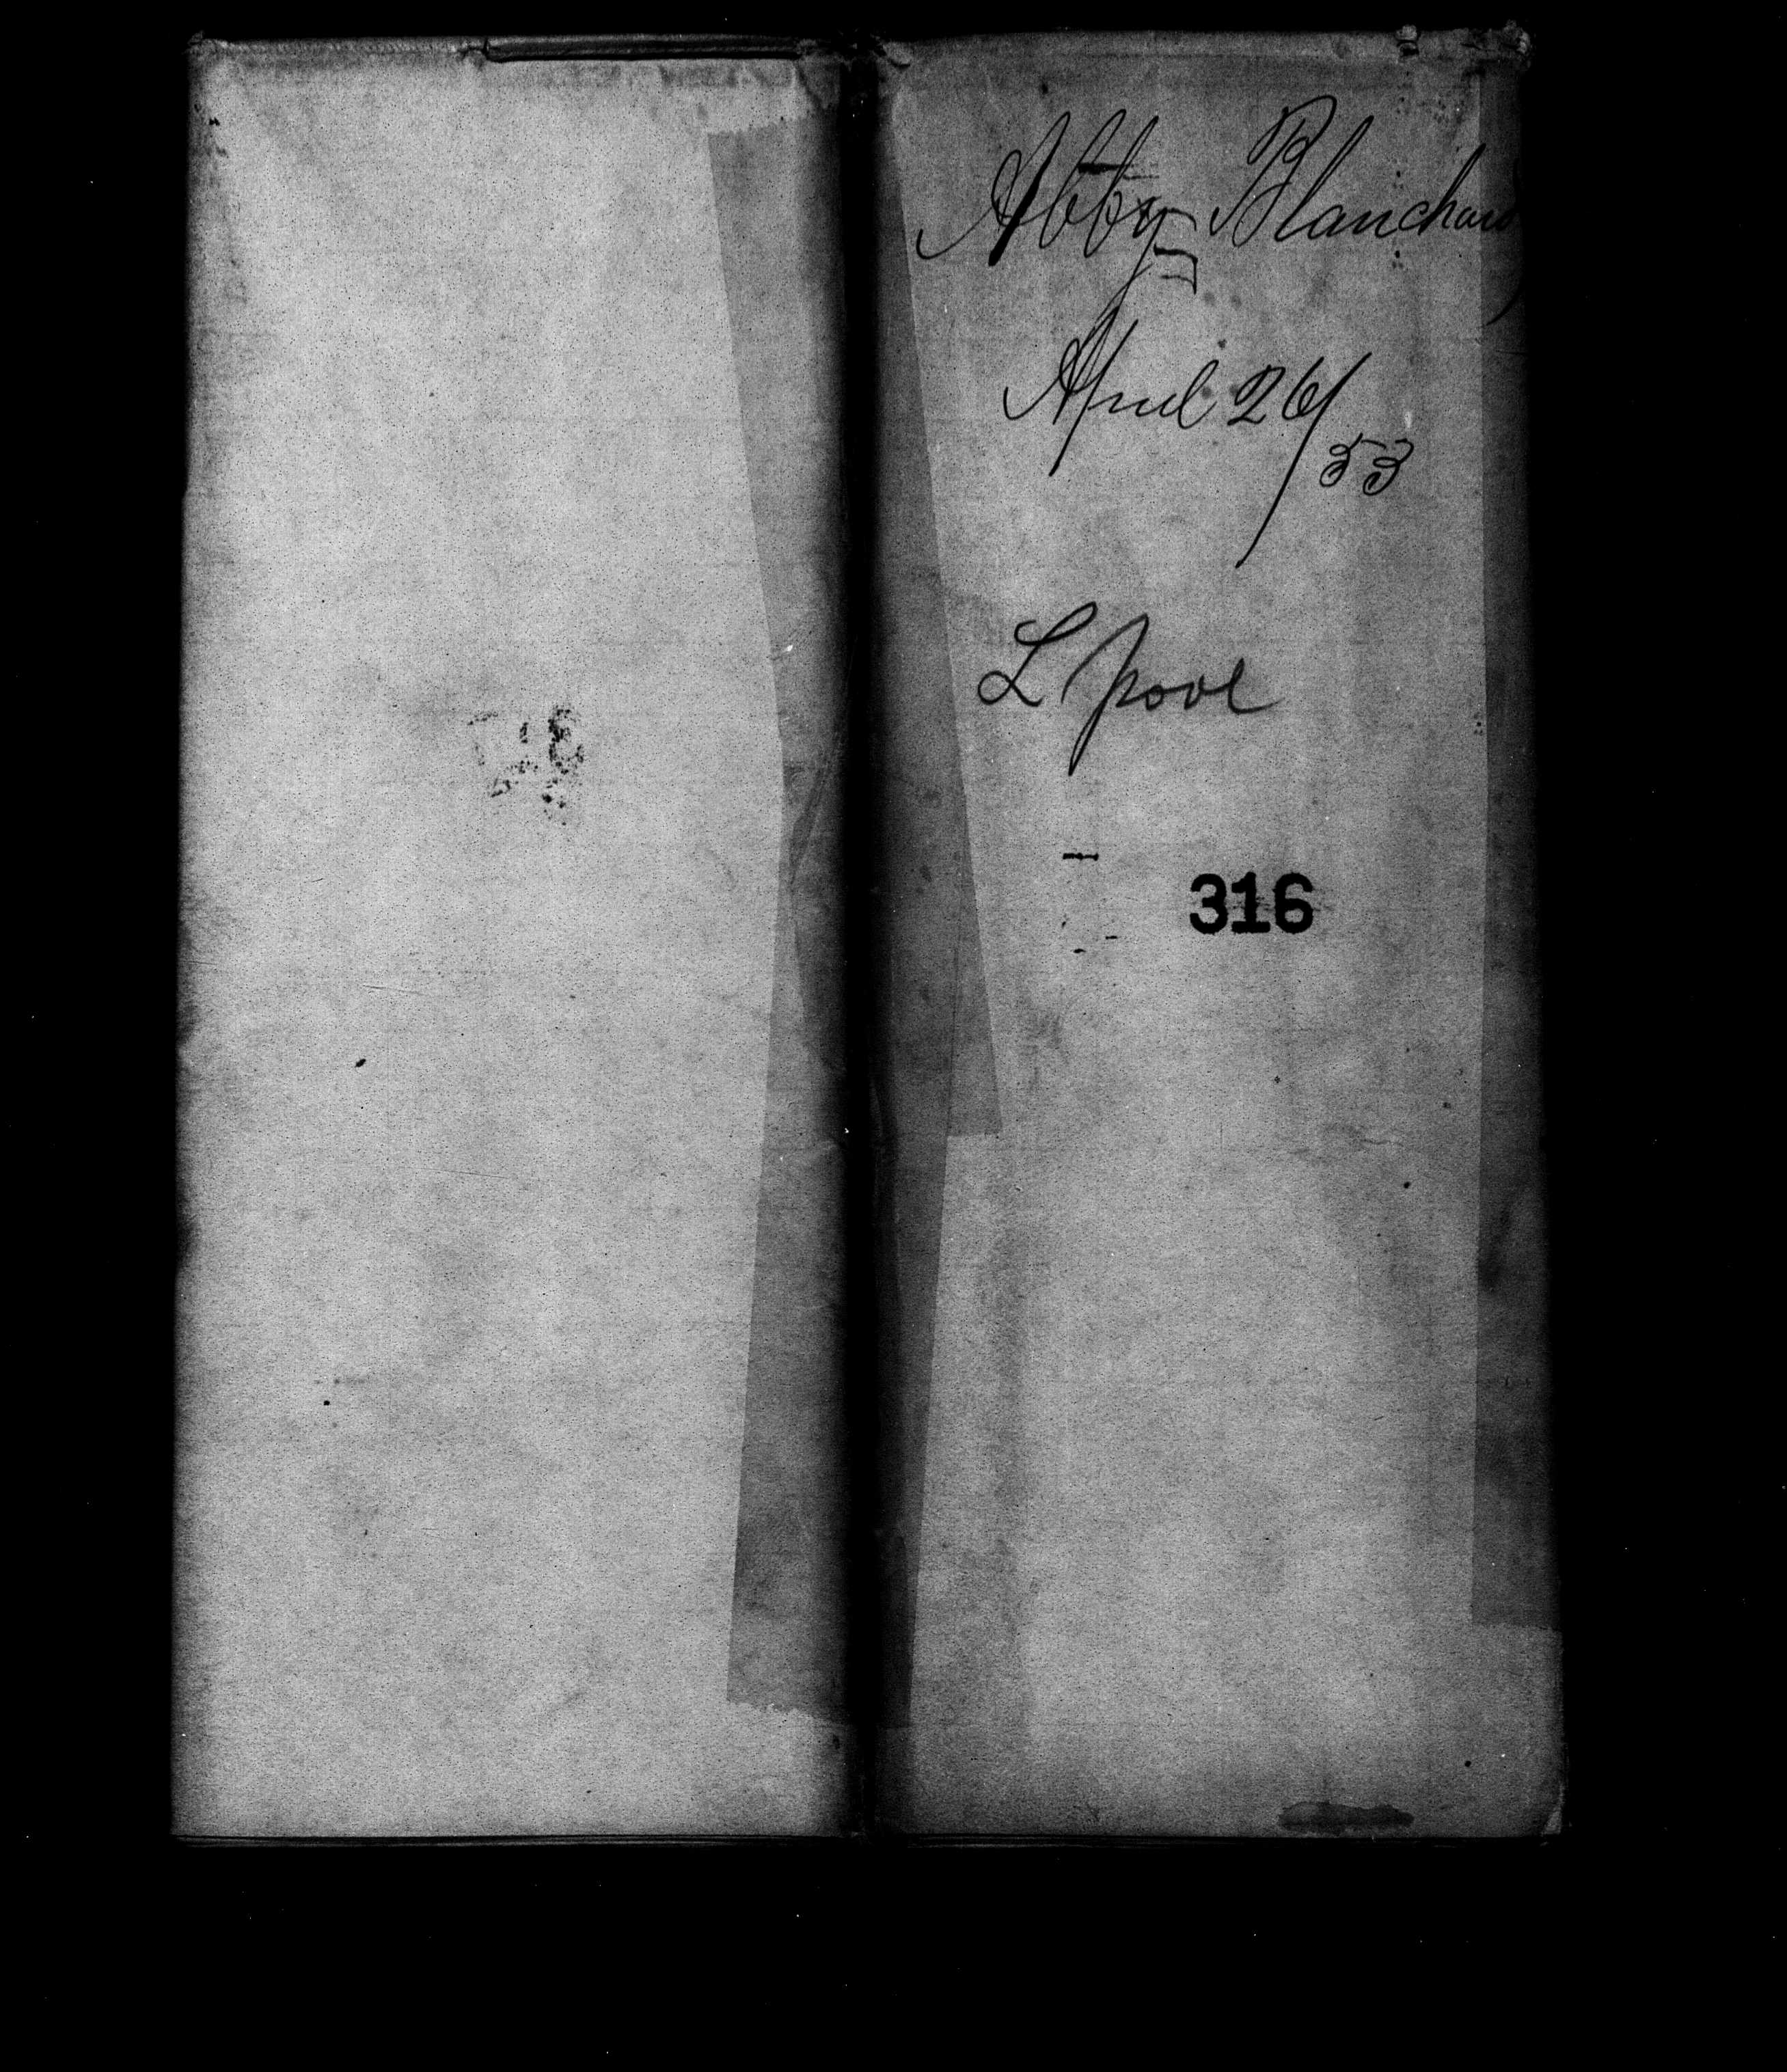 Abby Blanchard
April 26/53
L pool
316